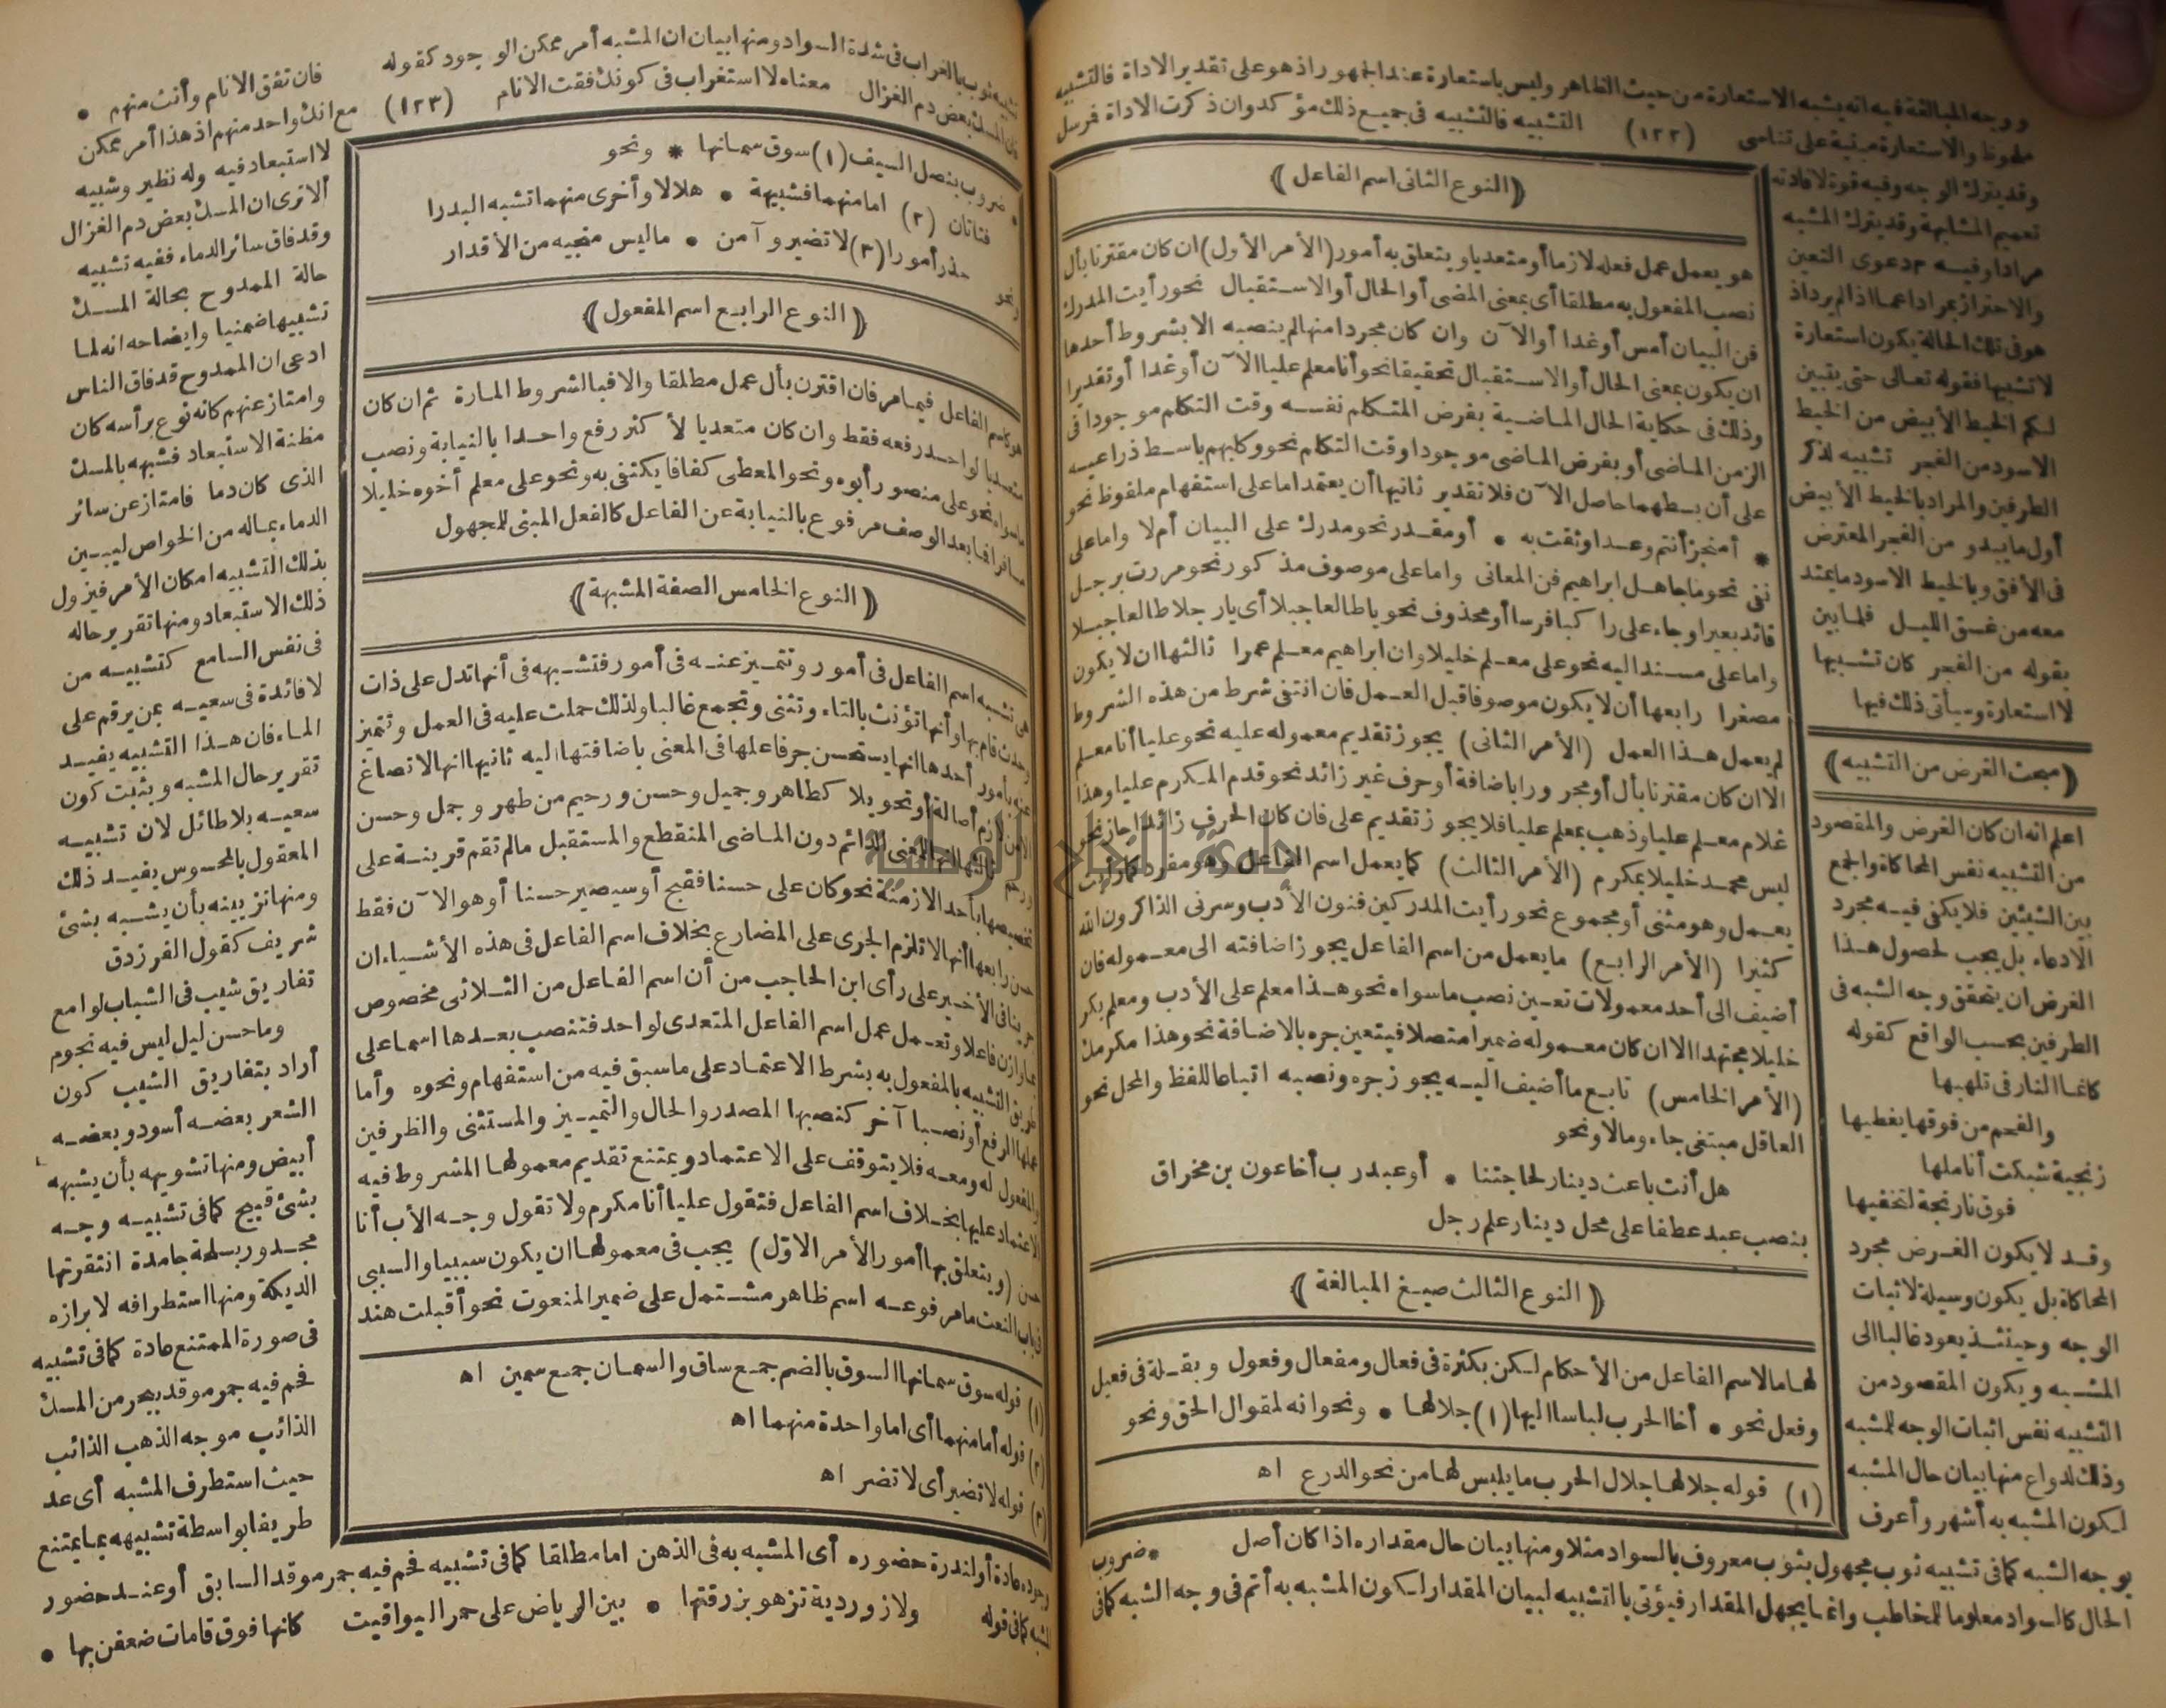 ووجه المبالغة فيه انه يشبه الاستعارة من حيث الظاهر وليس باستعارة عند الجمهور اذ هو على تقدير الاداة فالتشبيه
ملحوظ والاستعارة مبنية على تناسى (١٢٢) التشبيه فالتشبيه فى جميع ذلك مؤكد وان ذكرت الاداة فرسل
وقد يترك الوجه وفيه قوة لافادته
تعميم المشابهة وقد يترك المشبه
مرادا وفيه دعوى التعين
والاحتراز بمرادا عما اذا لم يرد اذ
هو فى تلك الحالة يكون استعارة
لا تشبيها فقوله تعالى حتى يتبين
لكم الخيط الأبيض من الخيط
الاسود من الفجر تشبيه لذكر
الطرفين والمراد بالخيط الأبيض
أول ما يبدو من الفجر المعترض
فى الأفق وبالخيط الاسود ما يمتد
معه من غسق الليل فلما بين
بقوله من الفجر كان تشبيها
لا استعارة وسيأتى ذلك فيها
(مبحث الغرض من التشبيه)
اعلم انه ان كان الغرض والمقصود
من التشبيه نفس المحاكاة والجمع
بين الشيئين فلا يكفى فيه مجرد
الادعاء بل يجب لحصول هذا
الغرض ان يتحقق وجه الشبه فى
الطرفين بحسب الواقع كقوله
كانما النار فى تلهبها
والفحم من فوقها يغطيها
زنجية شبكت أناملها
فوق نارنجة لتخفيها
وقد لا يكون الغرض مجرد
المحاكاة بل يكون وسيلة لاثبات
الوجه وحينئذ يعود غالبا الى
المشبه ويكون المقصود من
التشبيه نفس اثبات الوجه للمشبه
وذلك لدواع منها بيان حال المشبه
لكون المشبه به أشهر وأعرف
بوجه الشبه كما فى تشبيه ثوب مجهول بثوب معروف بالسواد مثلا ومنها بيان حال مقداره اذا كان أصل
الحال كالسواد معلوما للمخاطب وانما يجهل المقدار فيؤتى بالتشبيه لبيان المقدار لكون المشبه به أتم فى وجه الشبه كما فى
(النوع الثانى اسم الفاعل)
هو يعمل عمل فعله لازما أو متعديا ويتعلق به أمور (الأمر الأول) ان كان مقترنا بأل
نصب المفعول به مطلقا أى بمعنى المضى أو الحال أو الاستقبال نحو رأيت المدرك
فن البيان أمس أو غدا أو الآن وان كان مجردا منها لم ينصبه الا بشروط أحدها
ان يكون بمعنى الحال أو الاستقبال تحقيقا نحو أنا معلم عليا الآن أو غدا أو تقديرا
وذلك فى حكاية الحال الماضية بفرض المتكلم نفسه وقت التكلم موجودا فى
الزمن الماضى أو بفرض الماضى موجودا وقت التكلم نحو وكلبهم باسط ذراعيه
على أن بسطهما حاصل الآن فلا تقدير ثانيها أن يعتمد اما على استفهام ملفوظ نحو
* أمنجز أنتم وعدا وثقت به * أو مقدر نحو مدرك على البيان أم لا واما على
نفى نحو ما جاهل ابراهيم فن المعانى واما على موصوف مذكور نحو مررت برجل
قائد بعيرا وجاء على راكبا فرسا أو محذوف نحو يا طالعا جبلا أى يا رجلا طالعا جبلا
واما على مسند اليه نحو على معلم خليلا وان ابراهيم معلم عمرا ثالثها ان لا يكون
مصغرا رابعها أن لا يكون موصوفا قبل العمل فان انتفى شرط من هذه الشروط
لم يعمل هذا العمل (الأمر الثانى) يجوز تقديم معموله عليه نحو عليا أنا معلم
الا ان كان مقترنا بأل أو مجرورا باضافة أو حرف غير زائد نحو قدم المكرم عليا وهذا
غلام معلم عليا وذهب بمعلم عليا فلا يجوز تقديم على فان كان الحرف زائدا جاز نحو
ليس محمد خليلا بمكرم (الأمر الثالث) كما يعمل اسم الفاعل وهو مفرد كما رأيت
يعمل وهو مثنى أو مجموع نحو رأيت المدركين فنون الأدب وسرنى الذاكرون الله
كثيرا (الأمر الرابع) ما يعمل من اسم الفاعل يجوز اضافته الى معموله فان
أضيف الى أحد معمولات تعين نصب ما سواه نحو هذا معلم على الأدب ومعلم بكر
خليلا مجتهدا الا ان كان معموله ضميرا متصلا فيتعين جره بالاضافة نحو هذا مكرمك
(الأمر الخامس) تابع ما أضيف اليه يجوز جره ونصبه اتباعا للفظ والمحل نحو
العاقل مبتغى جاه ومالا ونحو
هل أنت باعث دينار لحاجتنا * أو عبد رب أخا عون بن مخراق
بنصب عبد عطفا على محل دينار علم رجل
(النوع الثالث صيغ المبالغة)
لها ما لاسم الفاعل من الأحكام لكن بكثرة فى فعال ومفعال وفعول وبقلة فى فعيل
وفعل نحو * أخا الحرب لباسا اليها (١) جلالها * ونحو انه لمقوال الحق ونحو
(١) قوله جلالها جلال الحرب ما يلبس لها من نحو الدرع اه
* ضروب
تشبيه ثوب بالغراب فى شدة السواد ومنها بيان ان المشبه أمر ممكن الوجود كقوله فان تفق الانام وأنت منهم *
فان المسك بعض دم الغزال معناه لا استغراب فى كونك فقت الانام (١٢٣) مع انك واحد منهم اذ هذا أمر ممكن
لا استبعاد فيه وله نظير وشبيه
ألا ترى ان المسك بعض دم الغزال
وقد فاق سائر الدماء ففيه تشبيه
حالة الممدوح بحالة المسك
تشبيها ضمنيا وايضاحه انه لما
ادعى ان الممدوح قد فاق الناس
وامتاز عنهم كانه نوع برأسه كان
مظنة الاستبعاد فشبهه بالمسك
الذى كان دما فامتاز عن سائر
الدماء بماله من الخواص ليبين
بذلك التشبيه امكان الأمر فيزول
ذلك الاستبعاد ومنها تقرير حاله
فى نفس السامع كتشبيه من
لا فائدة فى سعيه بمن يرقم على
الماء فان هذا التشبيه يفيد
تقرير حال المشبه ويثبت كون
سعيه بلا طائل لان تشبيه
المعقول بالمحسوس يفيد ذلك
ومنها تزيينه بأن يشبه بشئ
شريف كقول الفرزدق
تفاريق شيب فى الشباب لوامع
وما حسن ليل ليس فيه نجوم
أراد بتفاريق الشيب كون
الشعر بعضه أسود وبعضه
أبيض ومنها تشويهه بأن يشبهه
بشئ قبيح كما فى تشبيه وجه
مجدور بسلحة جامدة انتقرتها
الديكة ومنها استطرافه لابرازه
فى صورة الممتنع عادة كما فى تشبيه
فحم فيه جمر موقد ببحر من المسك
الذائب موجه الذهب الذائب
حيث استطرف المشبه أى عد
طريفا بواسطة تشبيهه بما يمتنع
وجوده عادة أو لندرة حضوره أى المشبه به فى الذهن اما مطلقا كما فى تشبيه فحم فيه جمر موقد السابق أو عند حضور
المشبه كما فى قوله ولازوردية تزهو بزرقتها * بين الرياض على حمر اليواقيت كانها فوق قامات ضعفن بها *
* ضروب بنصل السيف (١) سوق سمانها * ونحو
فتاتان (٢) اما منهما فشبيهة * هلالا وأخرى منهما تشبه البدرا
ونحو حذر أمورا (٣) لا تضير وآمن * ما ليس منجيه من الأقدار
(النوع الرابع اسم المفعول)
هو كاسم الفاعل فيما مر فان اقترن بأل عمل مطلقا والا فبالشروط المارة ثم ان كان
متعديا لواحد رفعه فقط وان كان متعديا لأكثر رفع واحدا بالنيابة ونصب
ما سواه نحو على منصور أبوه ونحو المعطى كفافا يكتفى به ونحو على معلم أخوه خليلا
مسافرا فما بعد الوصف مرفوع بالنيابة عن الفاعل كالفعل المبنى للمجهول
(النوع الخامس الصفة المشبهة)
هى تشبه اسم الفاعل فى أمور وتتميز عنه فى أمور فتشبهه فى أنها تدل على ذات
وحدث قام بها وأنها تؤنث بالتاء وتثنى وتجمع غالبا ولذلك حملت عليه فى العمل وتتميز
عنه بأمور أحدها انها يستحسن جر فاعلها فى المعنى باضافتها اليه ثانيها انها لا تصاغ
الا من لازم أصالة أو تحويلا كطاهر وجميل وحسن ورحيم من طهر وجمل وحسن
ورحم ثالثها انها للمعنى الدائم دون الماضى المنقطع والمستقبل ما لم تقم قرينة على
تخصيصها بأحد الازمنة نحو كان على حسنا فقبح أو سيصير حسنا أو هو الآن فقط
حسن رابعها أنها لا تلزم الجرى على المضارع بخلاف اسم الفاعل فى هذه الأشياء ان
جرينا فى الأخير على رأى ابن الحاجب من أن اسم الفاعل من الثلاثى مخصوص
بما وازن فاعلا وتعمل عمل اسم الفاعل المتعدى لواحد فتنصب بعدها اسما على
طريق التشبيه بالمفعول به بشرط الاعتماد على ما سبق فيه من استفهام ونحوه وأما
عملها الرفع أو نصبا آخر كنصبها المصدر والحال والتمييز والمستثنى والظرفين
والمفعول له ومعه فلا يتوقف على الاعتماد ويمتنع تقديم معمولها المشروط فيه
الاعتماد عليها بخلاف اسم الفاعل فتقول عليا أنا مكرم ولا تقول وجه الأب أنا
حسن (ويتعلق بها أمور الأمر الاول) يجب فى معمولها ان يكون سببيا والسببى
فى باب النعت ما مرفوعه اسم ظاهر مشتمل على ضمير المنعوت نحو أقبلت هند
(١) قوله سوق سمانها السوق بالضم جمع ساق والسمان جمع سمين اه
(٢) قوله أما منهما أى اما واحدة منهما اه
(٣) قوله لا تضير أى لا تضر اه
جامعة النجاح الوطنية